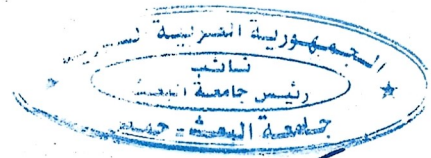 الجمهورية العربية السورية
نائب
رئيس جامعة البعث
جامعة البعث - حمص